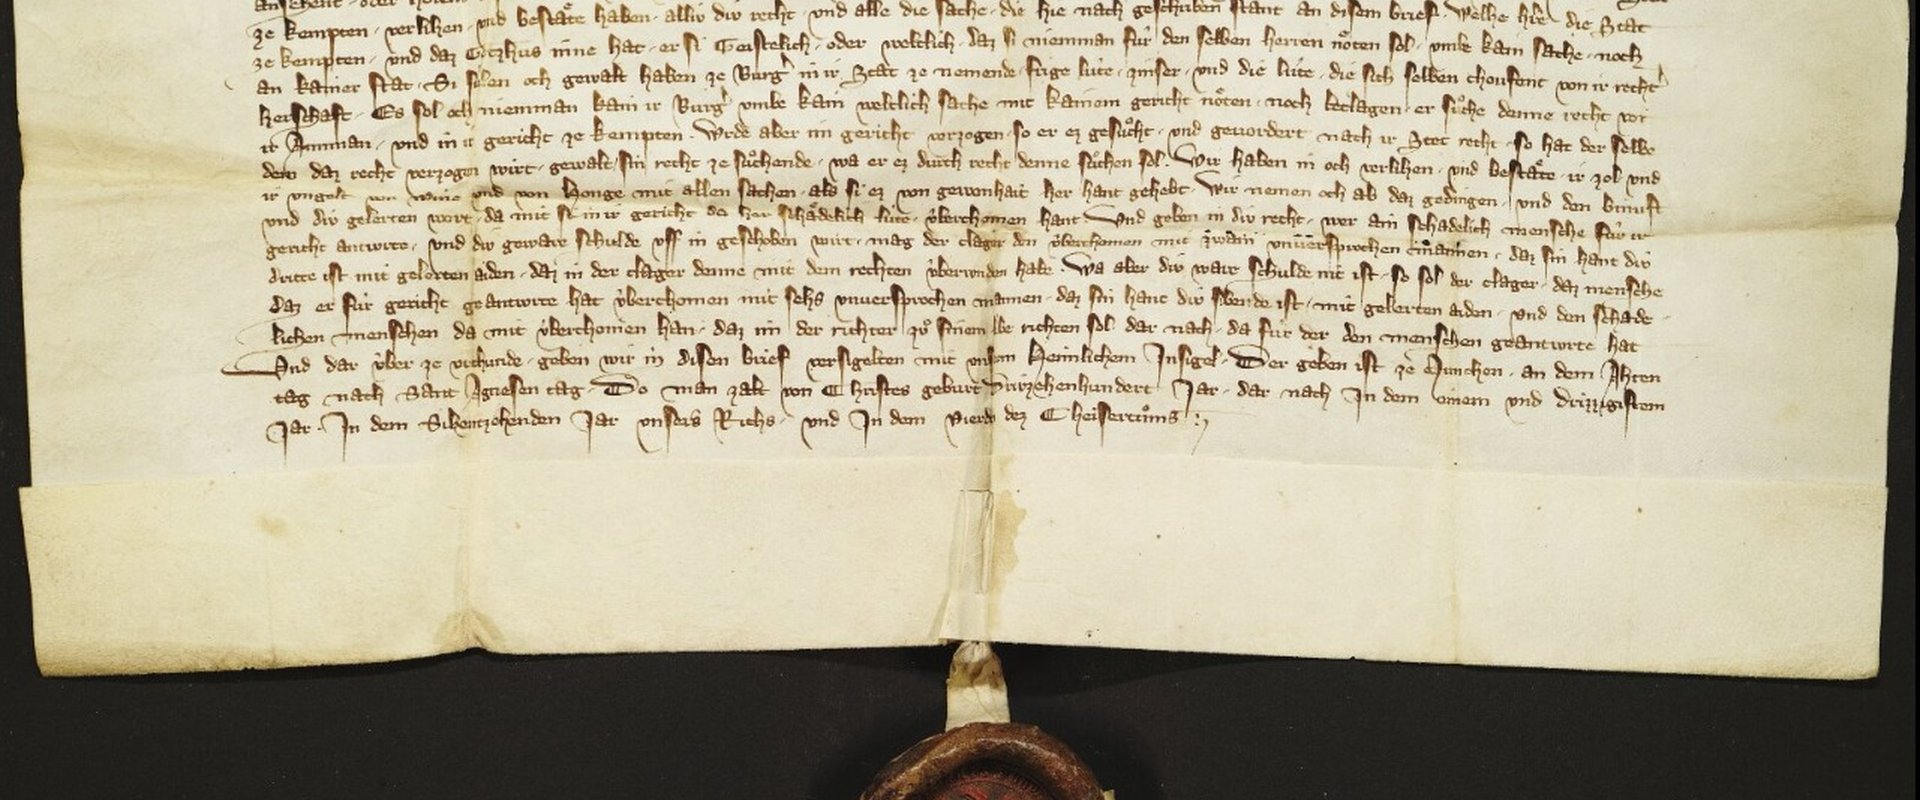 ze kempten · verlihen · vnd bestaͤte haben · alliv div recht · vnd alle die sache · die hie nach geschriben stant an disem brief · Welhe die Stat
ze kempten · vnd daz Gotzhus inne hat · er si Geistelich · oder weltlich · daz si niemman fuͤr den selben herren noͤten sol · vmbe kain sache · noch
an kainer stat · Si sulen och gewalt haben ze Burg in ir Stat ze nemende · frige luͤte · zinser · vnd die luͤte · die sich selben choufent von ir recht
herschaft · Es sol och niemman kain ir Burg vmbe kain weltlich sache mit kainem gericht noͤten · noch beclagen · er suͦche denne recht vor
ir Amman · vnd in ir gericht ze kempten · Wrde aber im gericht verzogen · so er ez gesuͦcht · vnd geuordert nach ir Stet recht · so hat der selbe
dem daz recht verzogen wirt · gewalt · sin recht ze suͦchende · wa er ez durch recht denne suͦchen sol · Wir haben in och verlihen · vnd bestaͤte · ir zol vnd
ir vngelt von wine vnd von Honge mit allen sachen · als si ez von gewonhait her hant gehebt · Wir nemen och ab daz gedingen · vnd den bunuft
vnd div gelerten wort · da mit si in ir gericht her schaͤdelich luͤte · vͤberchomen hant · Vnd geben in div recht · wer ain schadelich mensche fuͤr ir
gericht antwrte · vnd div geware schulde vff in geschoben wirt · mag der clager den vͤberchomen mit zwain vnuersprochen mannen · daz sin hant div
dritte ist mit gelerten aiden · daz in der clager denne mit dem rechten vͤberwnden habe · Wa aber div ware schulde nit ist · so sol der clager · daz mensche
daz er fuͤr gericht geantwrte hat vͤberchomen mit sehs vnuersprochen mannen · daz sin hant div sibende ist · mit gelerten aiden · vnd den schade
lichen menschen da mit vͤberchomen han · daz im der richter zuͦ sinem libe richten sol dar nach · da fuͤr der den menschen geantwrte hat
Vnd dar vͤber ze vrchunde · geben wir in disen brief versigelten mit vnserm Heimlichem Insigel · Der geben ist ze Munchen · an dem Ahten
tag nach Sant Agnesen tag · Do man zalt von Christes geburt Drivzehenhundert Jar · dar nach In dem einem vnd drizzigistem
Jar · In dem Sibentzehenden Jar vnsers Richs · vnd In dem Vierden dez Cheisertuͦms